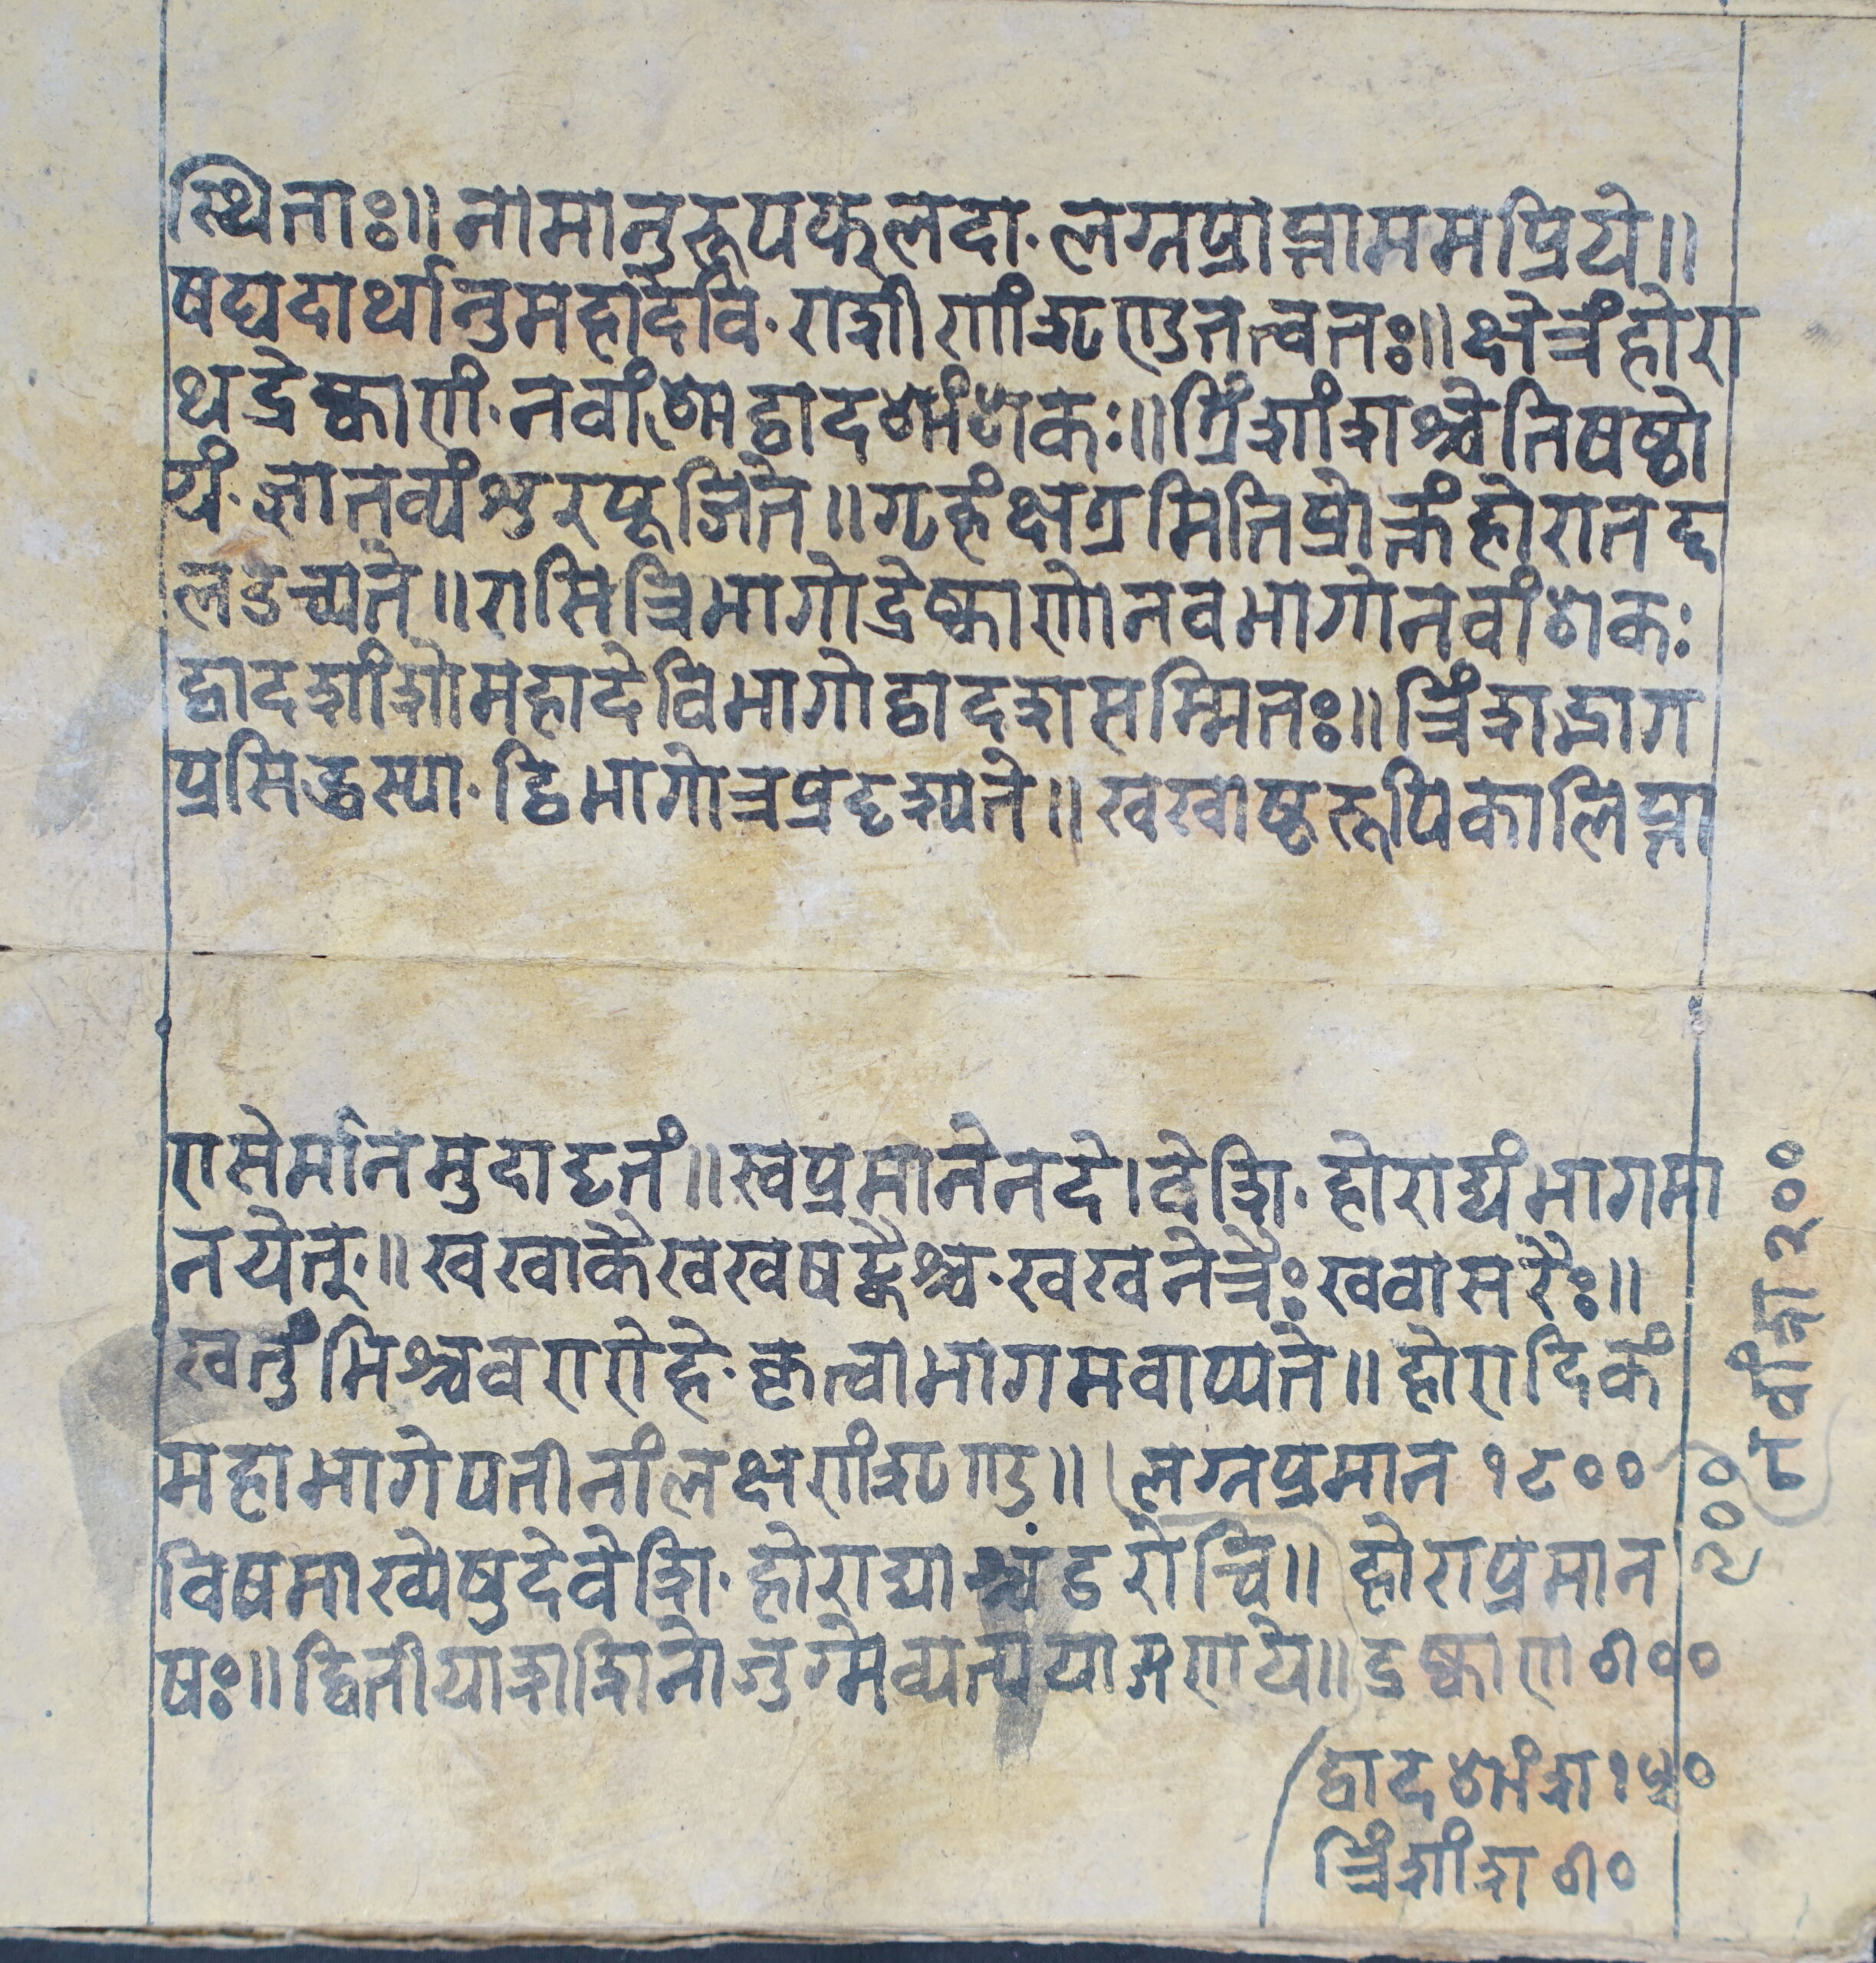 स्थिताः॥ नामानुरूपफलदा· लग्नप्राप्ताममप्रिये॥
षद्यदार्थानुमहादेवि· राशीणांशृणुतत्वतः॥ क्षेत्रंहोरा
थद्रेष्काणं· नवांशोद्वादशांशकः॥ त्रिंशांशश्चेतिषष्ठो
यं· ज्ञातव्यंशुरपूजिते॥ गृहंक्षत्रमितिप्रोक्तंहोरातद्द
लउच्यते॥ रासित्रिभागोद्रेष्काणोनवभागोनवांशकः
द्वादशांशोमहादेविभागोद्वादशसम्मितः॥ त्रिंशद्भाग
प्रसिद्धस्या· द्विभागोत्रप्रदृश्यते॥ खखाष्टरूपिकालिप्ता
रासेर्मानमुदाहृतं॥ स्वप्रमानेनदे।वेशि· होराद्यंभागमा
नयेत्·॥ खखाकैखखषट्कैश्च· खखनेत्रैः खवासरैः॥
खर्तुंभिश्चवरारोहे· कृत्वाभागमवाप्यते॥ होरादिकं
महाभागेपतीनांलक्षणंशृणु॥ लग्नप्रमान १८००
विषमाख्येषुदेवेशि· होराद्याश्चंडरोचि॥ होराप्रमान
९००
षः॥ द्वितीयाशशिनोजुग्मेव्यत्ययाङ्गणये॥ द्रष्काण ६००
द्वादशांश १५०
त्रिंशांश ६०
नवांश २००